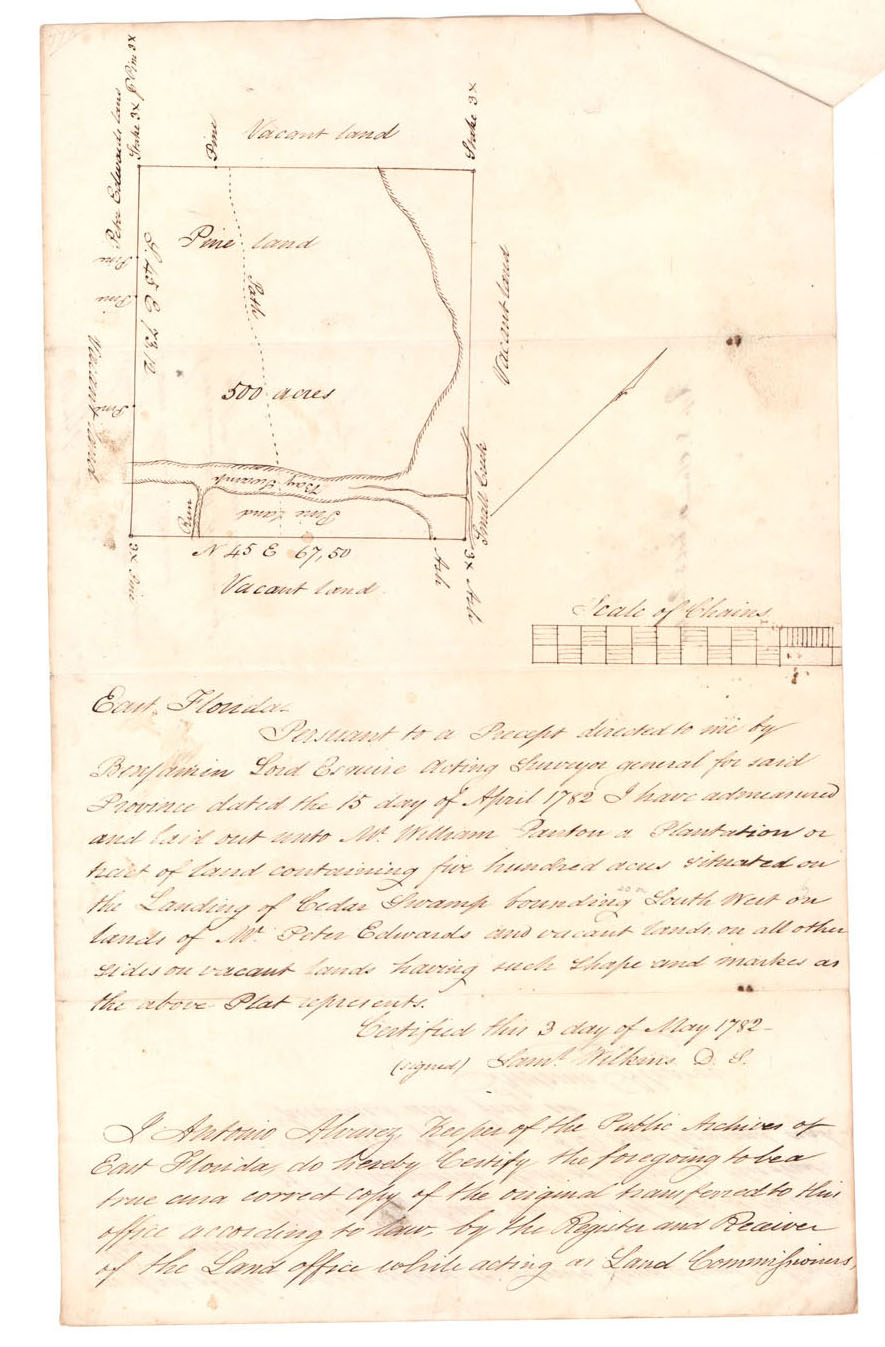 Vacant land
Pine
Stake 3X
Stake 3X & Pine 3X
Peter Edwards lans
Pine
Pine
Pine
Vacant land
S. 45 E 73,12
Pine land
Path
500 acres
Vacant land
Bay Swamp
Pine Land
Run
Small Creek
3X Pine
N 45 E 67,50
Ash
3X Ash
Vacant land
Scale of Chains
East Florida
Persuant to a Precept directed to me by
Benjamin Lord Esquire Acting Surveyor general for said
Province dated the 15 day of April 1782 I have admeasured
and laid out unto Mr. William Panton a Plantation or
tract of land containing five hundred acres situated on
the Landing of Cedar Swamp bounding South West on
lands of Mr. Peter Edwards and vacant lands, on all other
sides on vacant lands having such shape and markes as
the above Plat represents.
Certified this 3 day of May 1782 -
(signed) Saml. Wilkins D. S.
I Antonio Alvarez, Keeper of the Public Archives of
East Florida, do hereby Certify, the foregoing to be a
true and correct copy of the original transferred to this
office according to law, by the Register and Receiver
of the Land office while acting as Land Commissioners,